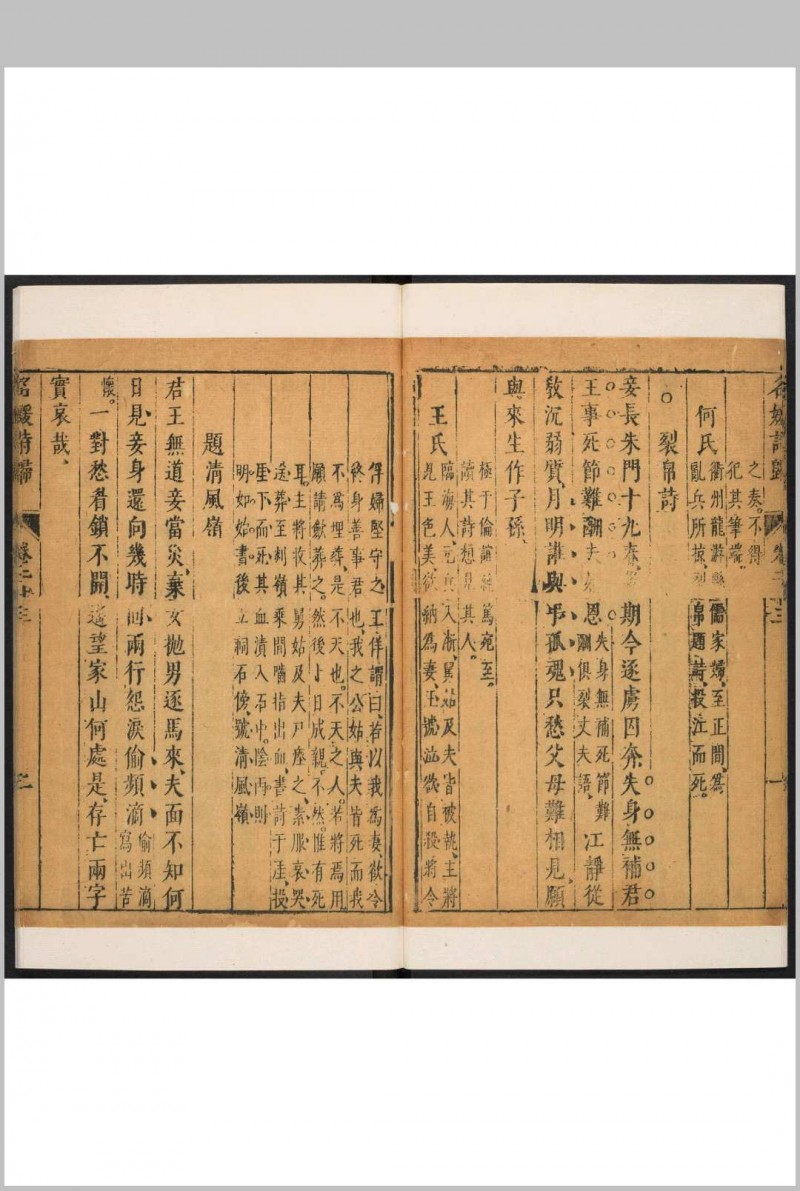 名媛詩歸
卷二十三
一
之奏。不得
犯其筆端。
何氏
衢州龍游縣儒家婦、至正間、爲
亂兵所掠、裂帛題詩、投江而死。
裂帛詩
妾長朱門十九春、期今逐虜囚奔、失身無補君
王事、死節難酬夫恩、
失身無補死節難
酬俱裂丈夫語、
江靜從
教沉弱質、月明誰與弔孤魂、只愁父母難相見、願
與來生作子孫、
極于倫篤宛至。
讀其詩想見其人。
王氏
臨海人、元兵入浙、舅姑及夫皆被執、主將
見王色美、欲納爲妻、王號泣欲自殺、將令
俘婦堅守之、王佯謂曰、若以我爲妻、欲令
終身善事君也、我之公姑與夫皆死、而我
不爲埋葬、是不天也。不天之人。若將焉用
願請歛葬之。然後卜日成親。不然。惟有死
耳、主將收其舅姑及夫尸瘞之、素服哀哭
送葬至剡嶺、乘間嚙指出血、書詩于崖、投
崖下而死、其血漬入石中。陰雨則
明如始書。後立祠石傍、號清風嶺、
題清風嶺
君王無道妾當災、棄女抛男逐馬來、夫面不知何
日見、妾身還向幾時回、兩行怨淚偷頻滴、
偷頻滴
寫出苦
懷。
一對愁眉鎖不開、遙望家山何處是、存亡兩字
實哀哉、
名媛詩歸
卷二十三
二